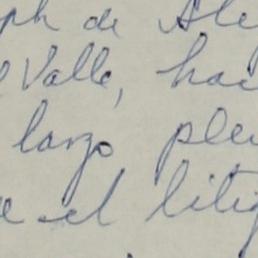 ph de Ale
Valle, hac
largo plei
e el litig